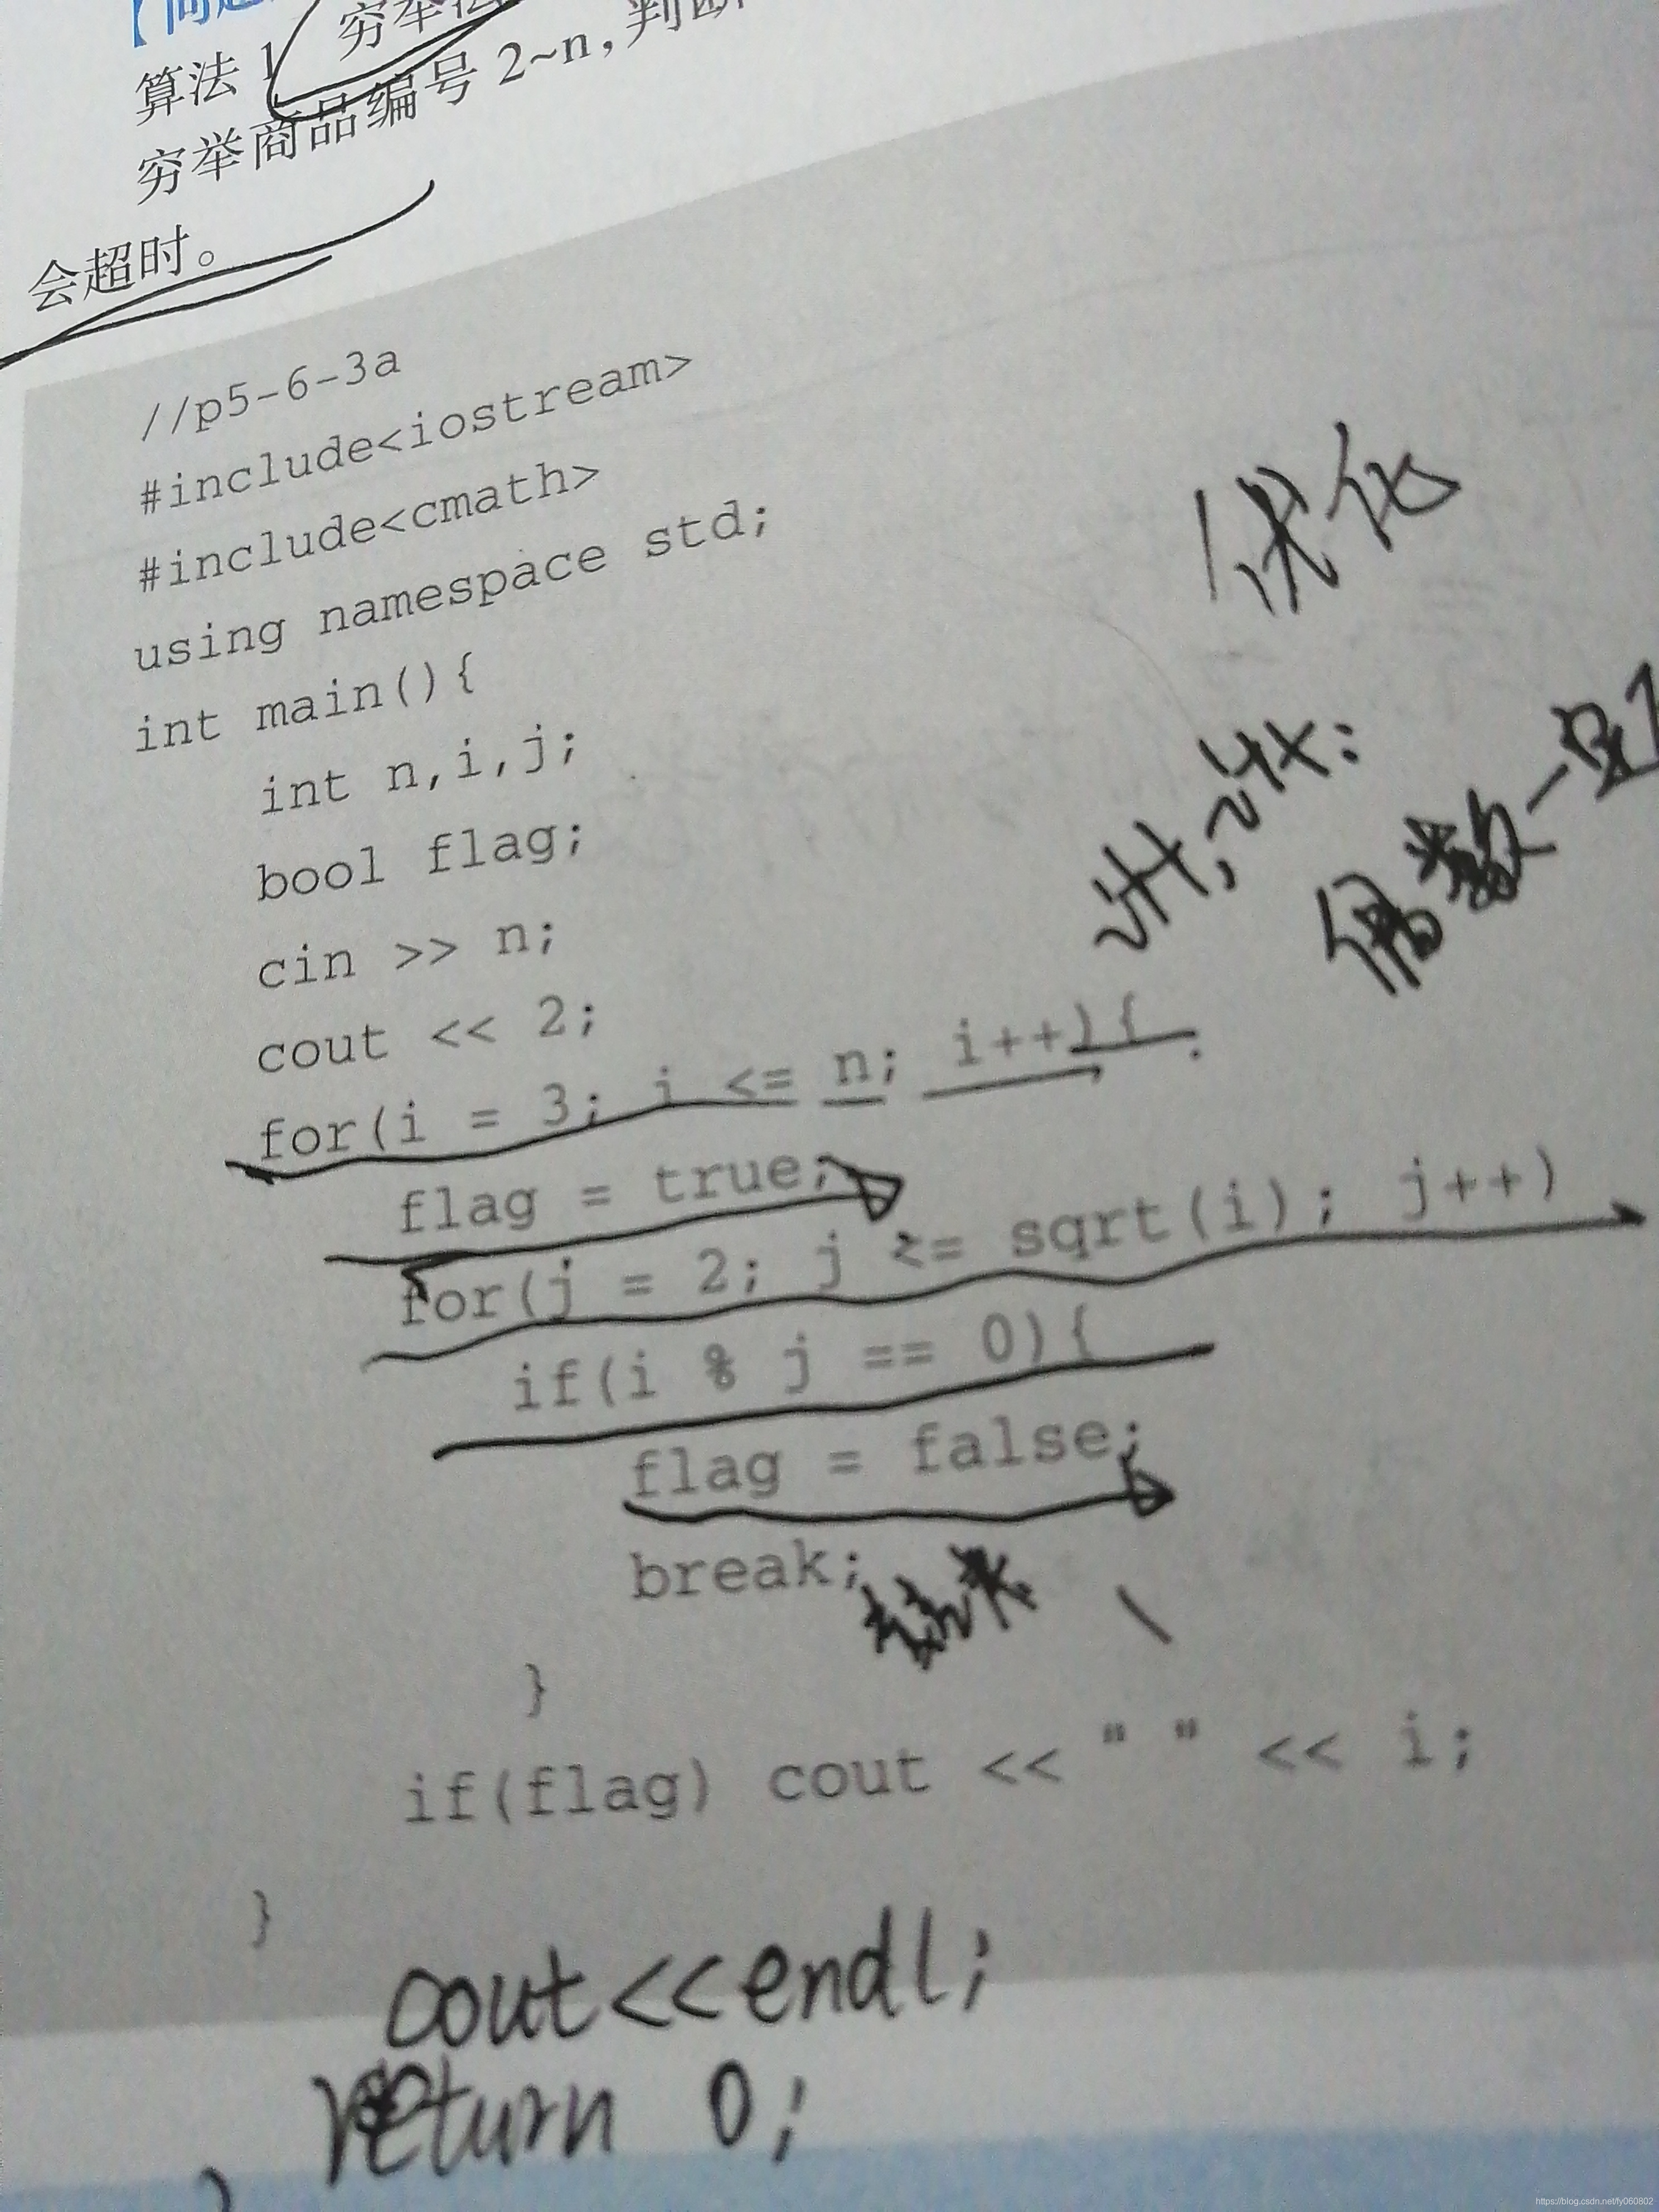 【问题
算法 1 穷举法
穷举商品编号 2~n,判断
会超时。
//p5-6-3a
#include<iostream>
#include<cmath>
using namespace std;
int main(){
int n,i,j;
bool flag;
cin >> n;
cout << 2;
for(i = 3; i <= n; i++){
flag = true;
for(j = 2; j <= sqrt(i); j++)
if(i % j == 0){
flag = false;
break;
}
if(flag) cout << " " << i;
}
优化
偶数一定
cout<<endl;
return 0;
https://blog.csdn.net/fy060802